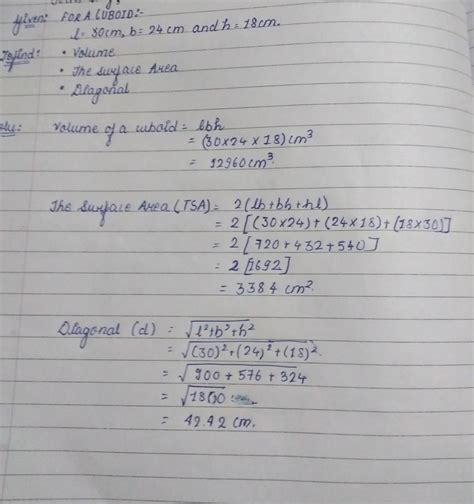 Given: FOR A CUBOID:-
l = 30cm, b = 24 cm and h = 18cm.
Tofind: • Volume
• The Surface Area
• Diagonal
Volume of a cuboid = lbh
= (30×24×18)cm³
= 12960cm³
The Surface Area (TSA) = 2(lb+bh+hl)
= 2[(30×24)+(24×18)+(18×30)]
= 2[720+432+540]
= 2[1692]
= 3384 cm².
Diagonal (d) = √l²+b²+h²
= √(30)²+(24)²+(18)².
= √900+576+324
= √1800
= 42.42 cm.